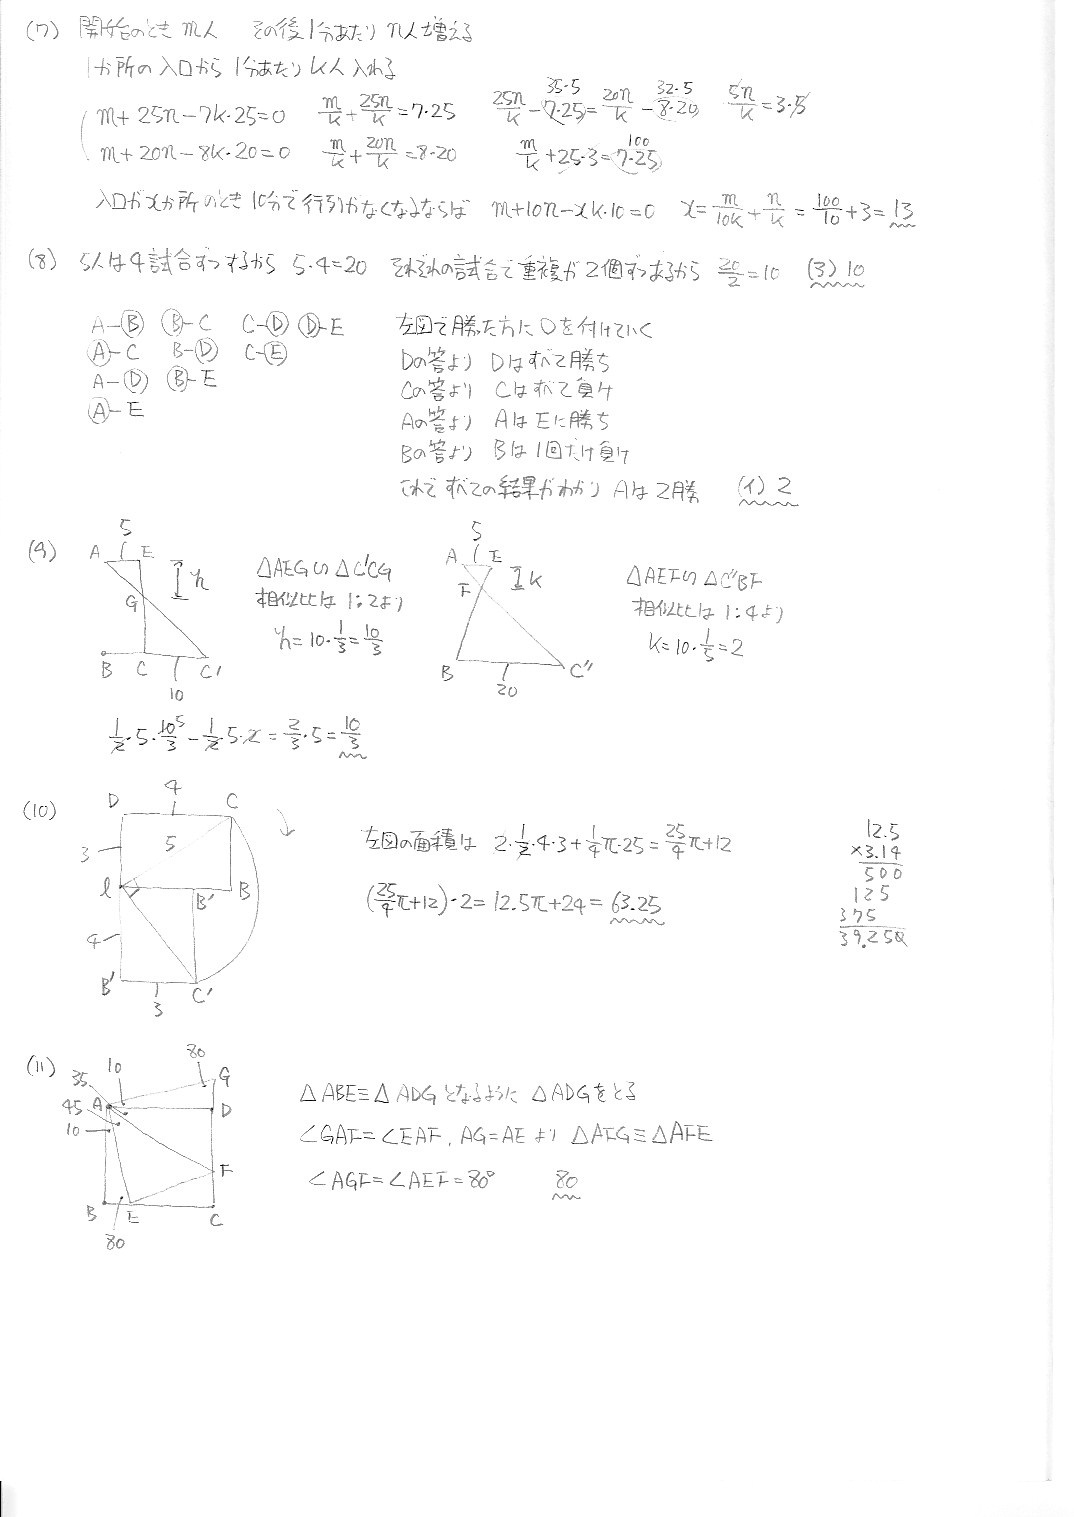 (7) 開始のとき m人 その後1分あたり n人増える
1か所の入口から1分あたり k人入れる
m+25n-7k・25=0 m/k+25n/k=7・25 25n/k-7・25=20n/k-8・20 35・5 32・5 5n/k=3・5
m+20n-8k・20=0 m/k+20n/k=8・20 m/k+25・3=7・25 100
入口がxか所のとき10分で行列がなくなるならば m+10n-xk・10=0 x=m/10k+n/k=100/10+3=13
(8) 5人は4試合ずつするから 5・4=20 それぞれの試合で重複が2個ずつあるから 20/2=10 (3) 10
A-B B-C C-D D-E 左図で勝った方に○を付けていく
A-C B-D C-E Dの答より Dはすべて勝ち
A-D B-E Cの答より Cはすべて負け
A-E Aの答より AはEに勝ち
Bの答より Bは1回だけ負け
これですべての結果がわかり Aは2勝 (イ) 2
(9) 5 A E h G B C C' 10
△AEG∽△C'CG
相似比は 1:2より
h=10・1/3=10/3
5 A E F k B C'' 20
△AEF∽△C''BF
相似比は 1:4より
k=10・1/5=2
1/2・5・10/3-1/2・5・2=2/3・5=10/3
(10) 4 D C 3 5 l B' B 4 B' C' 3
左図の面積は 2・1/2・4・3+1/4π・25=25/4π+12
(25/4π+12)・2=12.5π+24=63.25
12.5
×3.14
500
125
375
39.250
(11) 80 10 35 G A D 45 10 F B E C 80
△ABE≡△ADGとなるように △ADGをとる
∠GAF=∠EAF, AG=AE より △AFG≡△AFE
∠AGF=∠AEF=80° 80